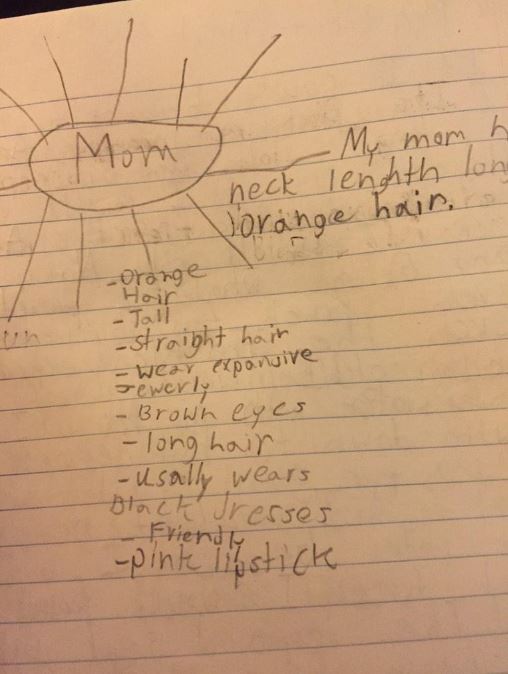 Mom
My mom h
neck lenghth lon
orange hair.
-Orange
Hair
-Tall
-straight hair
-wear expansive
Jewerly
- Brown eyes
- long hair
-usally wears
Black dresses
- Friendly
-pink lipstick
un